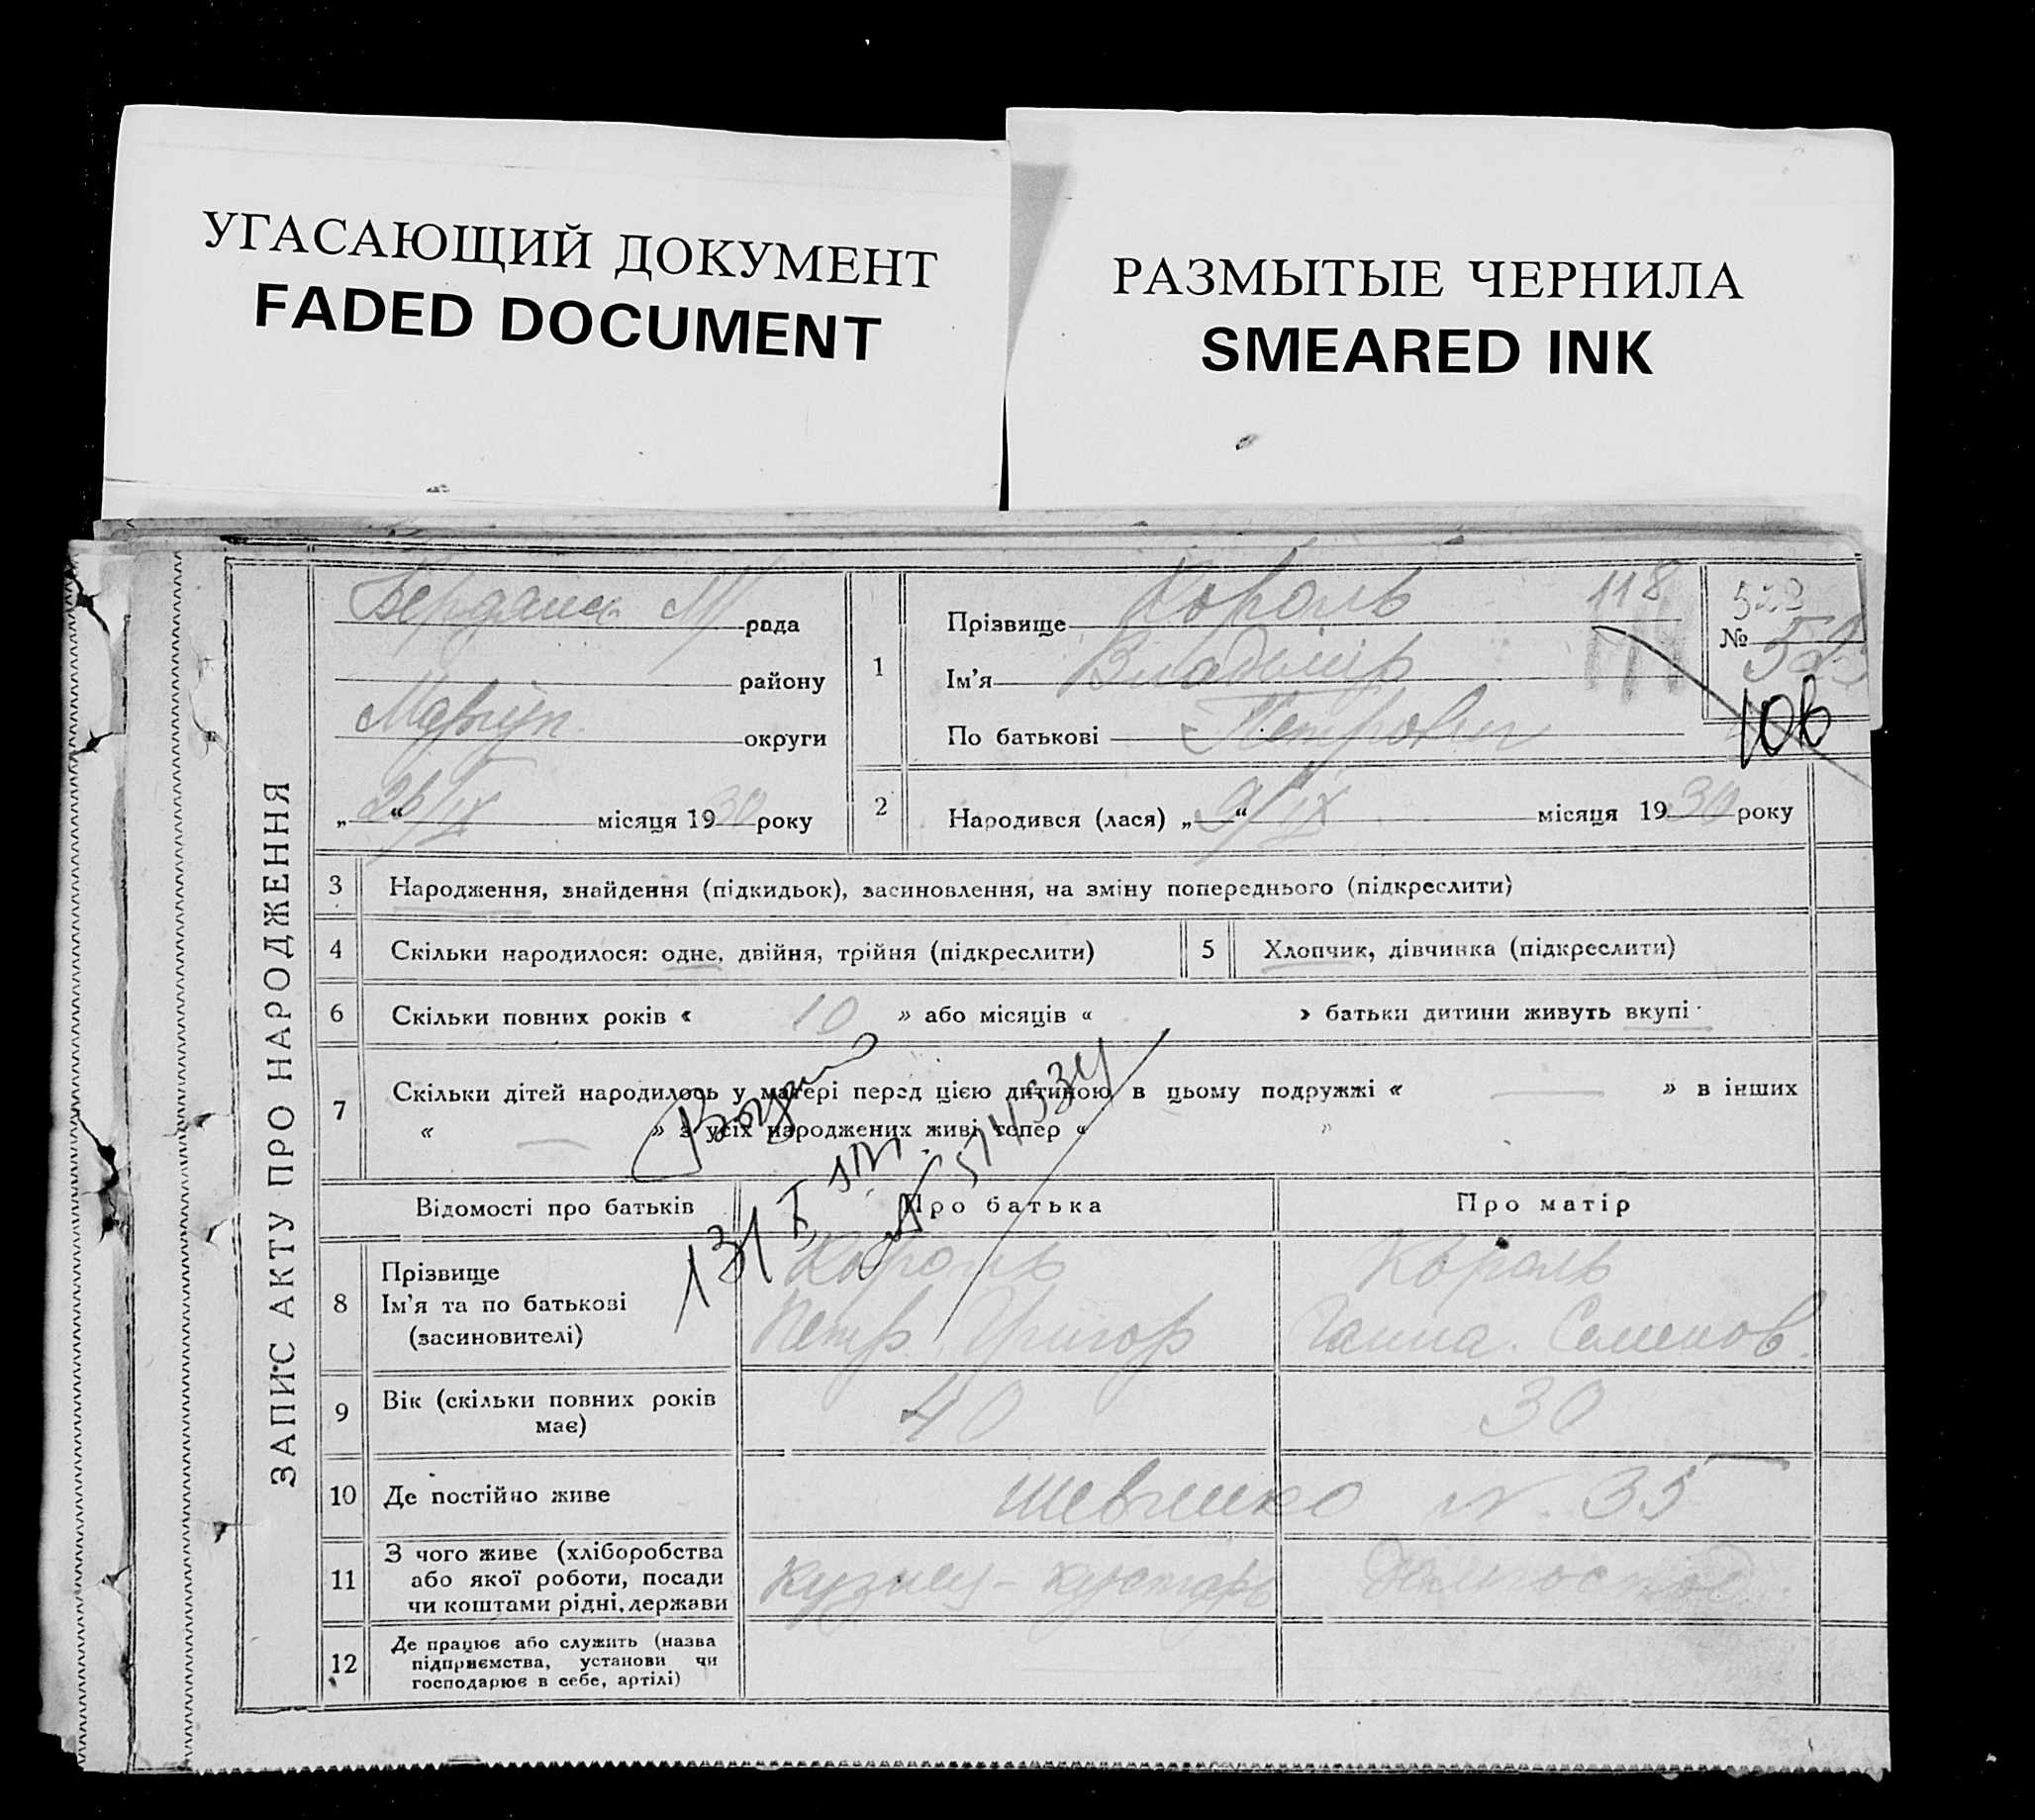 УГАСАЮЩИЙ ДОКУМЕНТ
FADED DOCUMENT
РАЗМЫТЫЕ ЧЕРНИЛА
SMEARED INK
ЗАПИС АКТУ ПРО НАРОДЖЕННЯ
Бердянськ М рада
району
Маріуп. округи
„26/IX“ місяця 1930 року
1
Прізвище Король
118
523
№ 523
Ім'я Владімір
По батькові Петрович
106
2
Народився (лася) „9/IX“ місяця 1930 року
3 Народження, знайдення (підкидьок), засиновлення, на зміну попереднього (підкреслити)
4 Скільки народилося: одне, двійня, трійня (підкреслити)
5 Хлопчик, дівчинка (підкреслити)
6 Скільки повних років « 10 » або місяців « » батьки дитини живуть вкупі
7 Скільки дітей народилось у матері перед цією дитиною в цьому подружжі « — » в інших
« — » з усіх народжених живі тепер « »
Відомості про батьків Про батька Про матір
8 Прізвище Король Король
Ім'я та по батькові Петр Григор Ганна Семенов.
(засиновителі)
9 Вік (скільки повних років має) 40 30
10 Де постійно живе Шевченко N. 35
11 З чого живе (хліборобства
або якої роботи, посади
чи коштами рідні, держави
Кузнец - кустарь
12 Де працює або служить (назва
підприємства, установи чи
господарює в себе, артілі)